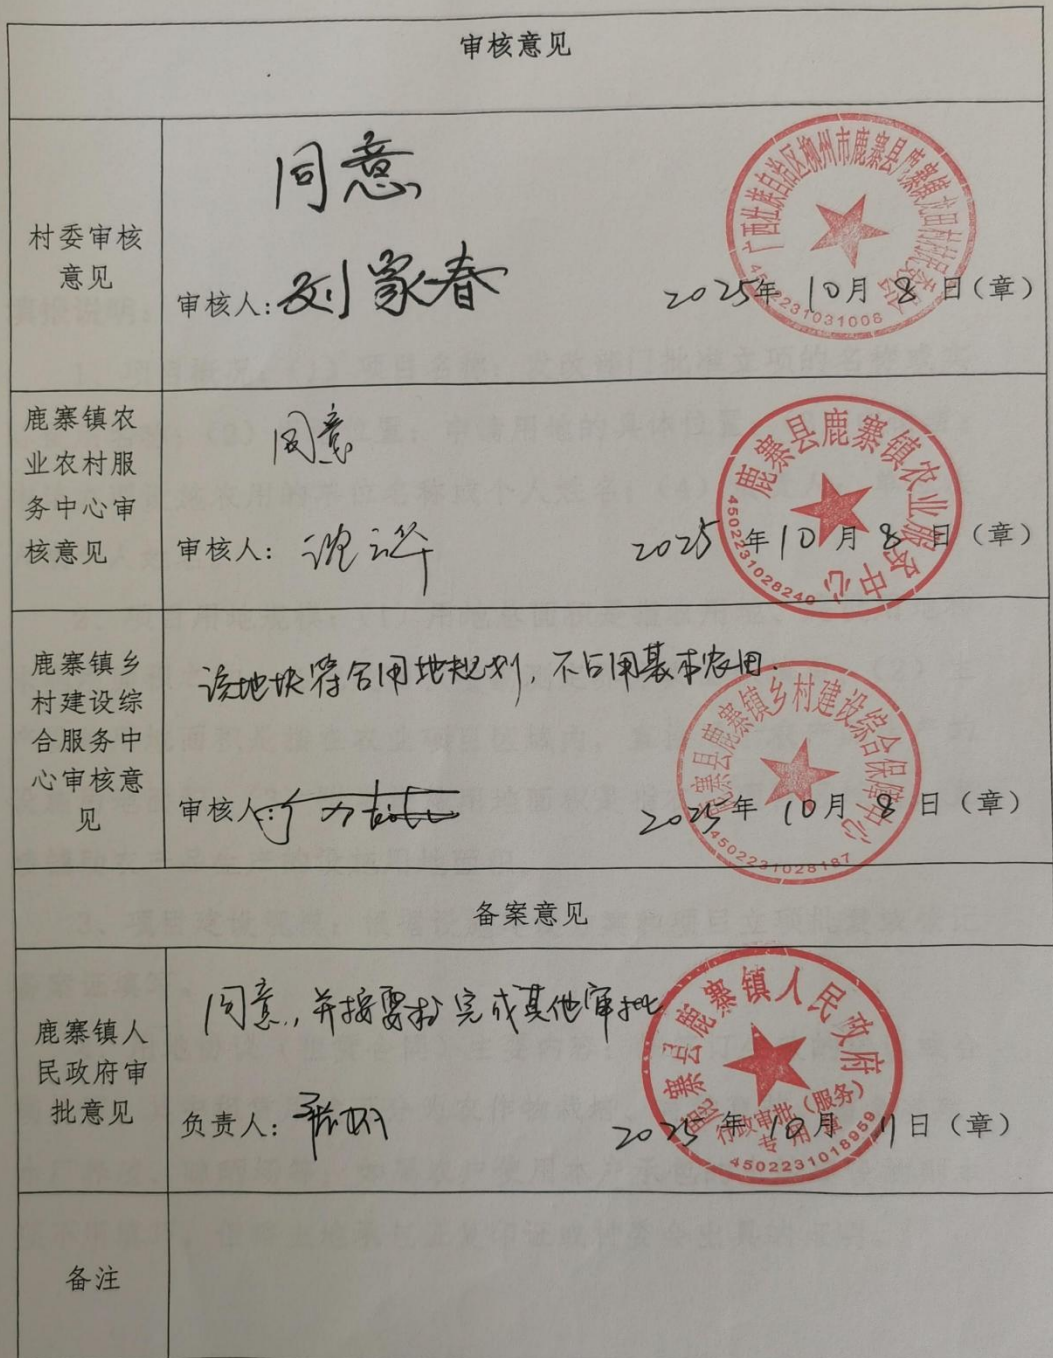 审核意见
村委审核
意见
同意
审核人：刘家春
2025年10月8日（章）
4502231031008
鹿寨镇农
业农村服
务中心审
核意见
同意
审核人：
2025年10月8日（章）
鹿寨县鹿寨镇农业服务中心
4502231028240
鹿寨镇乡
村建设综
合服务中
心审核意
见
该地块符合用地规划，不占用基本农田.
审核人：
2025年10月8日（章）
鹿寨县鹿寨镇乡村建设综合保障中心
4502231028187
备案意见
鹿寨镇人
民政府审
批意见
同意，并按要求完成其他审批
负责人：
2025年10月11日（章）
鹿寨县鹿寨镇人民政府
行政审批（服务）
专用章
4502231018959
备注